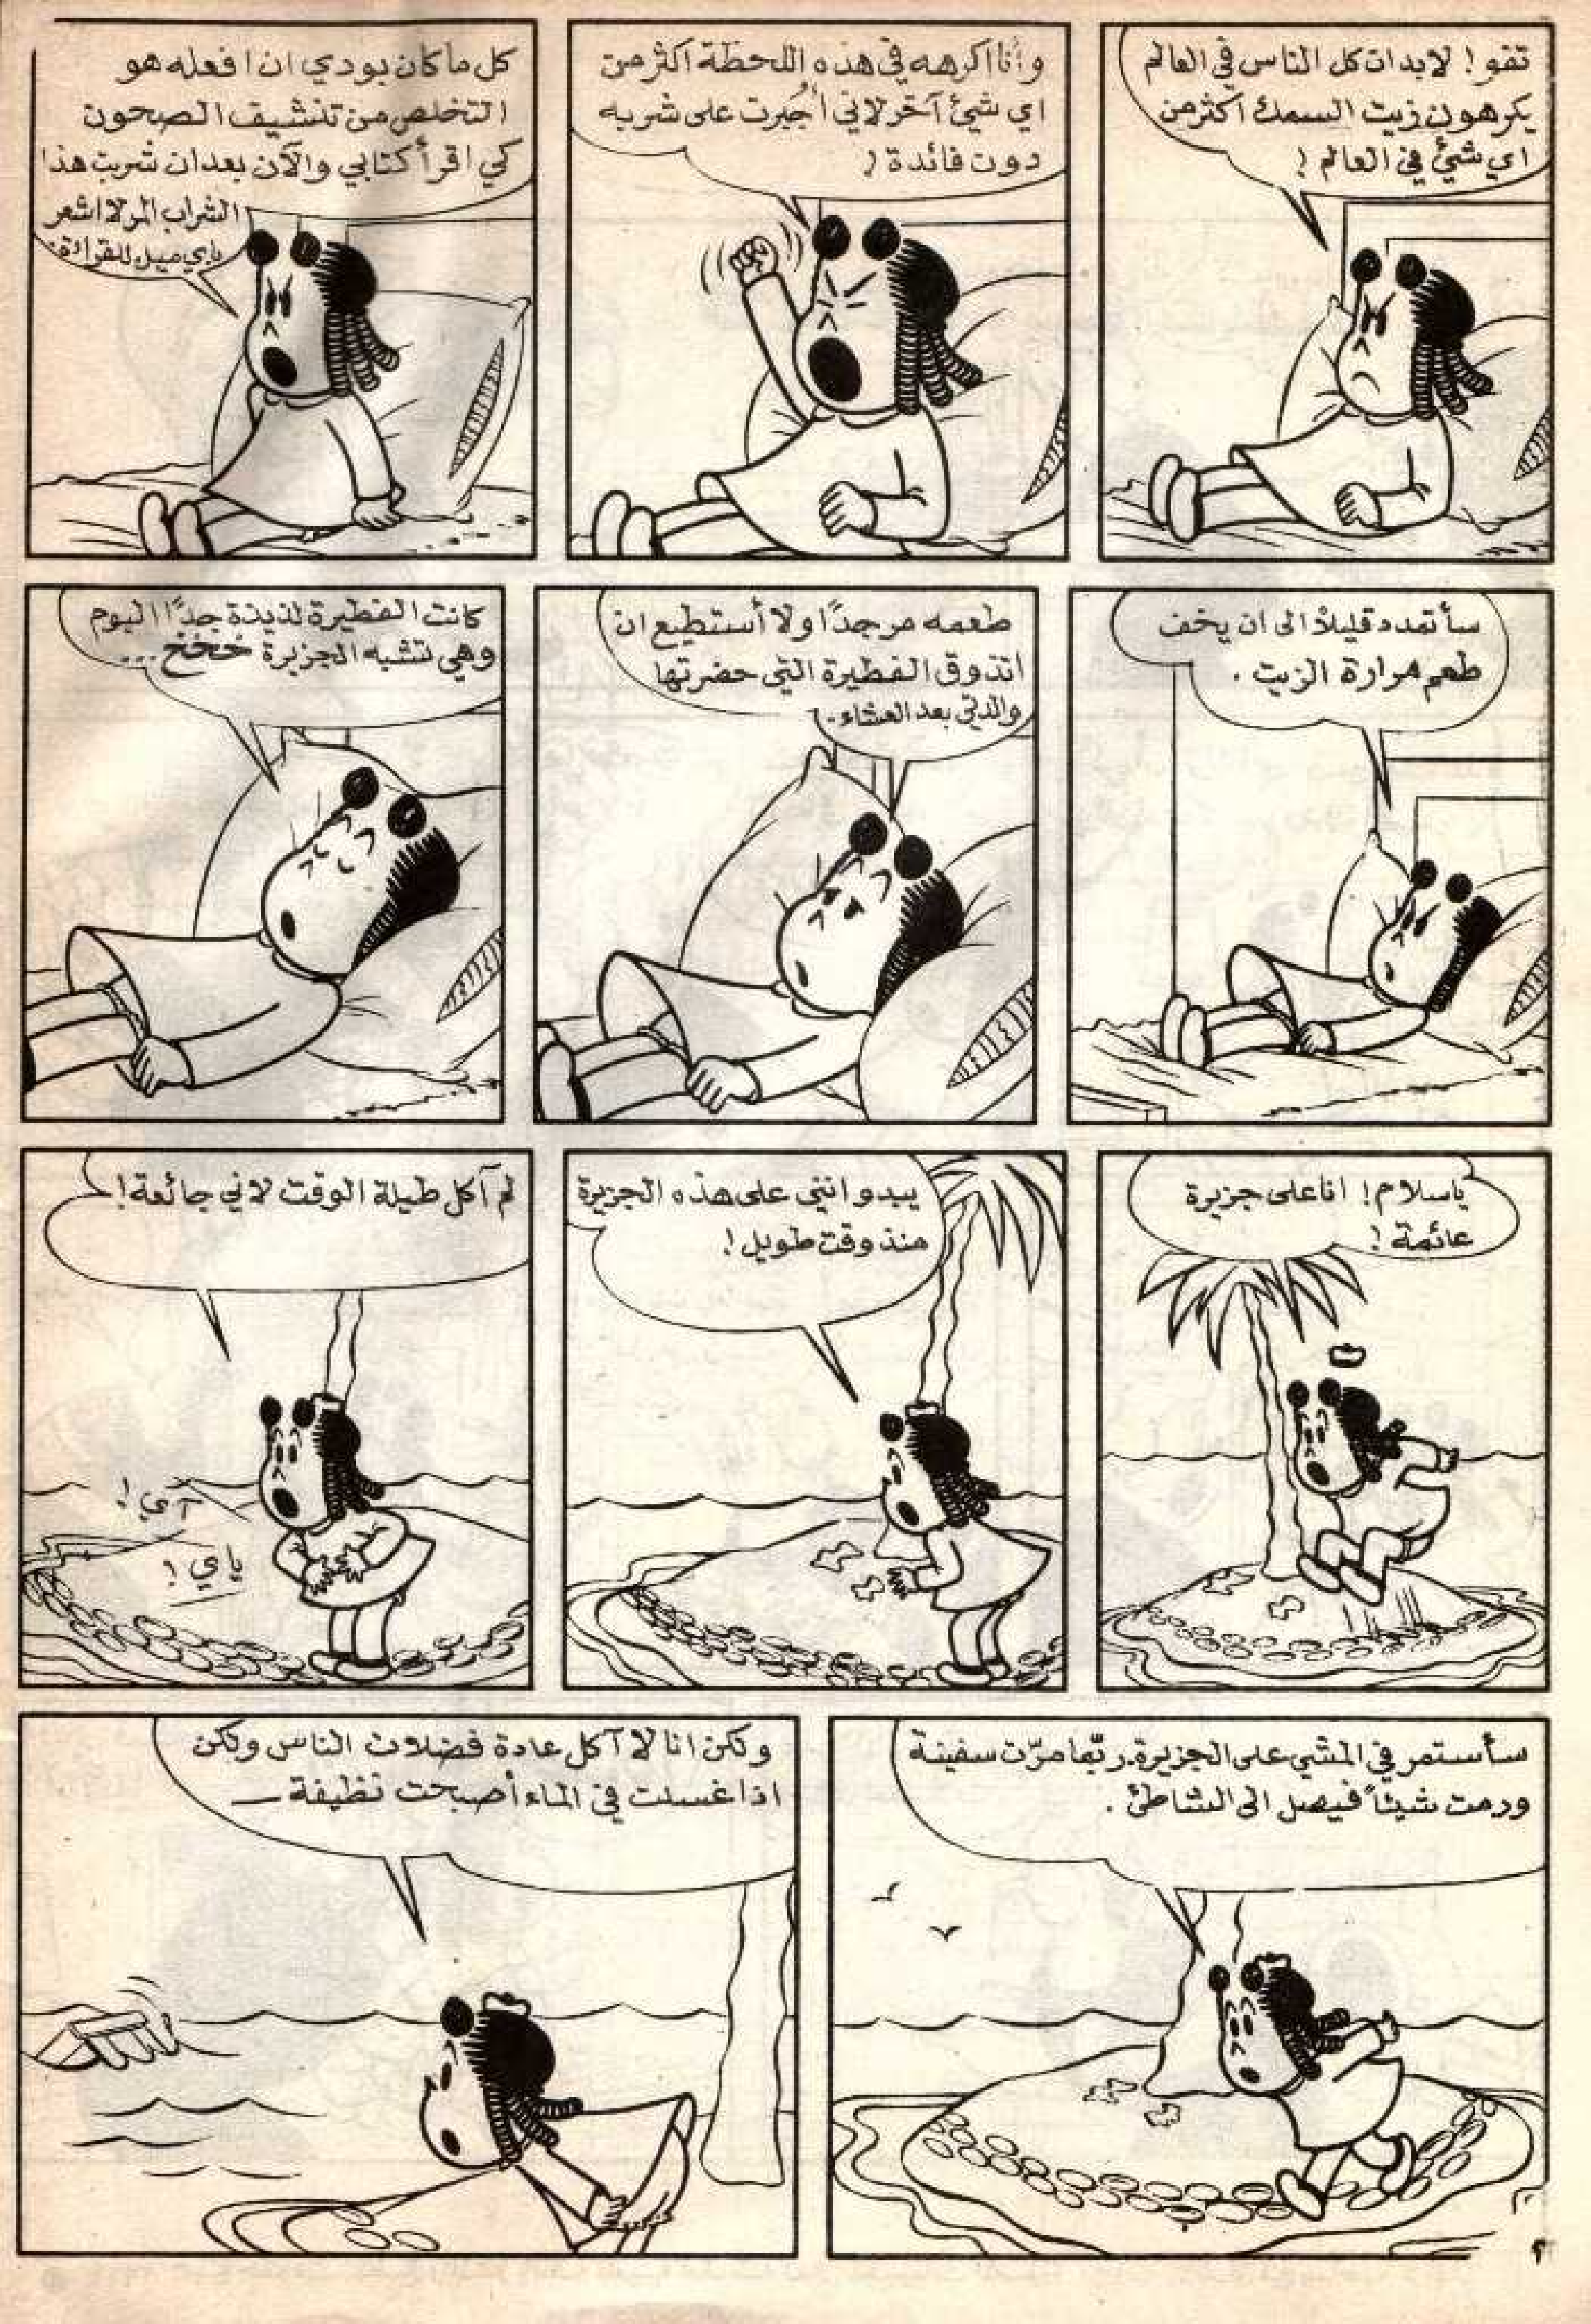 تفو! لابدان كل الناس في العالم
يكرهون زيت السمك اكثر من
اي شيء في العالم!
وأنا اكرهه في هذه اللحظة اكثر من
اي شيء آخر لاني أُجبرت على شربه
دون فائدة!
كل ما كان بودي ان افعله هو
التخلص من تنشيف الصحون
كي اقرأ كتابي والآن بعد ان شربت هذا
الشراب المر لا اشعر
باي ميل للقراءة.
سأتمدد قليلاً الى ان يخف
طعم مرارة الزيت.
طعمه مر جدًا ولا أستطيع ان
اتذوق الفطيرة التي حضرتها
والدتي بعد العشاء..
كانت الفطيرة لذيذة جدًا اليوم
وهي تشبه الجزيرة خخخخ...
ياسلام! انا على جزيرة
عائمة!
يبدو انني على هذه الجزيرة
منذ وقت طويل!
لم آكل طيلة الوقت لاني جائعة!
آي!
ياي!
سأستمر في المشي على الجزيرة. ربّما مرّت سفينة
ورمت شيئاً فيصل الى الشاطئ.
ولكن انا لا آكل عادة فضلات الناس ولكن
اذا غسلت في الماء أصبحت نظيفة —